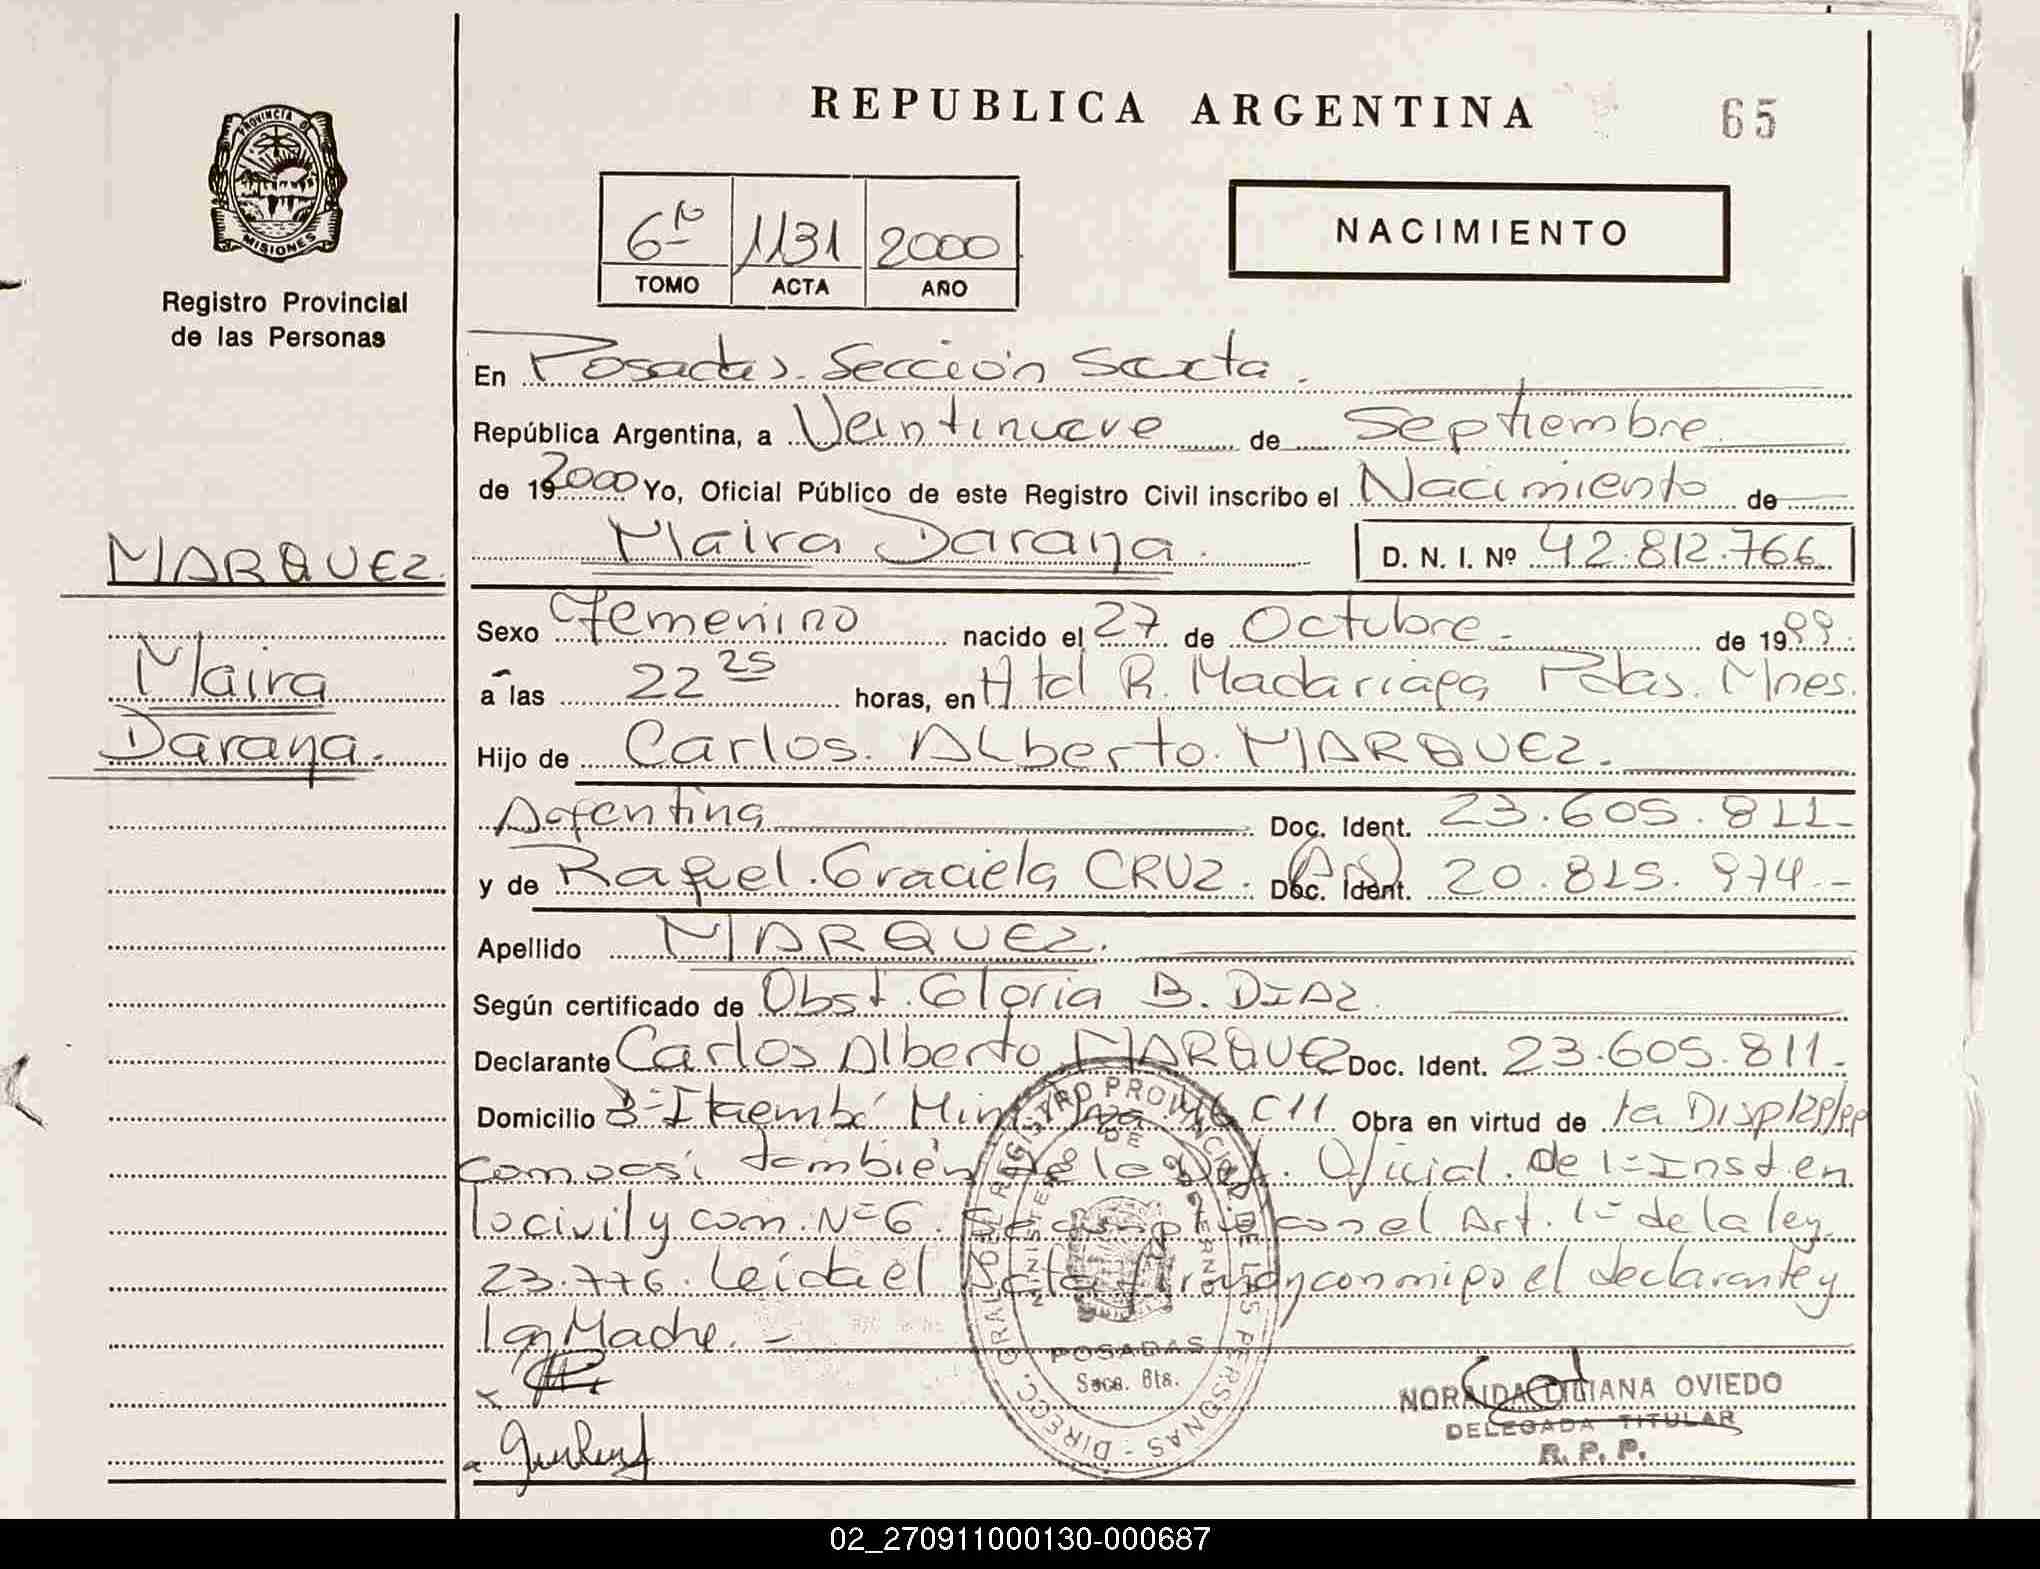 REPUBLICA ARGENTINA
65
PROVINCIA D
MISIONES
Registro Provincial
de las Personas
6to 1131 2000
TOMO ACTA AÑO
NACIMIENTO
En Posadas. Sección Sexta.
República Argentina, a Veintinueve de Septiembre
de 19 2000 Yo, Oficial Público de este Registro Civil inscribo el Nacimiento de
Maira Darana. D. N. I. Nº 42.812.766
MARQUEZ
Maira
Darana.
Sexo Femenino nacido el 27 de Octubre de 1999
a las 22 25 horas, en Htal R. Madariaga Pdas. Mnes.
Hijo de Carlos Alberto MARQUEZ.
Argentina Doc. Ident. 23.605.811-
y de Raquel Graciela CRUZ. Doc. Ident. 20.815.974.-
Apellido MARQUEZ.
Según certificado de Obst. Gloria B. DIAZ.
Declarante Carlos Alberto MARQUEZ Doc. Ident. 23.605.811.
Domicilio Bº Itaembé Miní C11 Obra en virtud de la
como así también de la Oficial de 1º Inst. en
lo civil y com. Nº 6. Se cumple con el Art. 1º de la ley
23.776. Leída el Acta firman conmigo el declarante y
la Madre. -
DIRECC. GRAL. DEL REGISTRO PROVINCIAL DE LAS PERSONAS
MINISTERIO DE GOBIERNO
POSADAS
Secc. 6ta.
NORAIDA LILIANA OVIEDO
DELEGADA TITULAR
R. P. P.
02_270911000130-000687